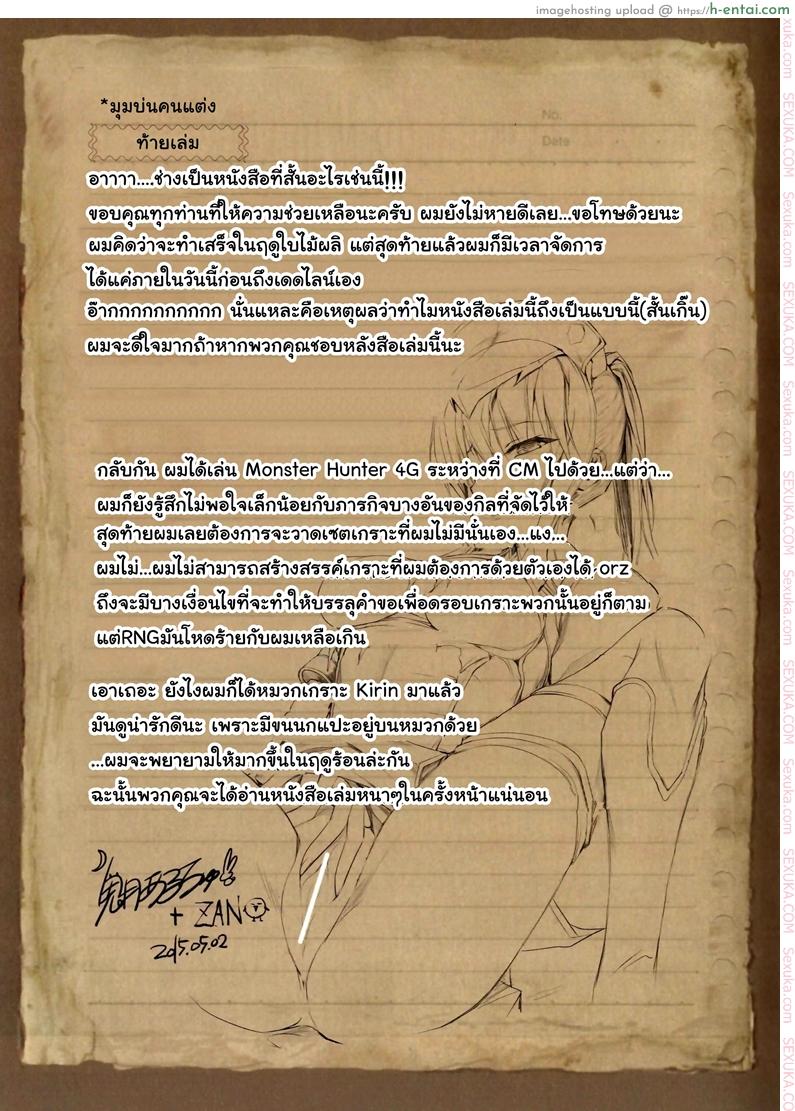 imagehosting upload @ https://h-entai.com
*มุมบ่นคนแต่ง
ท้ายเล่ม
No.
Date
อาาาา....ช่างเป็นหนังสือที่สั้นอะไรเช่นนี้!!!
ขอบคุณทุกท่านที่ให้ความช่วยเหลือนะครับ ผมยังไม่หายดีเลย...ขอโทษด้วยนะ
ผมคิดว่าจะทำเสร็จในฤดูใบไม้ผลิ แต่สุดท้ายแล้วผมก็มีเวลาจัดการ
ได้แค่ภายในวันนี้ก่อนถึงเดดไลน์เอง
อ๊ากกกกกกกกกกก นั่นแหละคือเหตุผลว่าทำไมหนังสือเล่มนี้ถึงเป็นแบบนี้(สั้นเกิ๊น)
ผมจะดีใจมากถ้าหากพวกคุณชอบหลังสือเล่มนี้นะ
กลับกัน ผมได้เล่น Monster Hunter 4G ระหว่างที่ CM ไปด้วย...แต่ว่า...
ผมก็ยังรู้สึกไม่พอใจเล็กน้อยกับภารกิจบางอันของกิลที่จัดไว้ให้
สุดท้ายผมเลยต้องการจะวาดเซตเกราะที่ผมไม่มีนั่นเอง...แง...
ผมไม่...ผมไม่สามารถสร้างสรรค์เกราะที่ผมต้องการด้วยตัวเองได้ orz
ถึงจะมีบางเงื่อนไขที่จะทำให้บรรลุคำขอเพื่อดรอบเกราะพวกนั้นอยู่ก็ตาม
แต่RNGมันโหดร้ายกับผมเหลือเกิน
เอาเถอะ ยังไงผมก็ได้หมวกเกราะ Kirin มาแล้ว
มันดูน่ารักดีนะ เพราะมีขนนกแปะอยู่บนหมวกด้วย
...ผมจะพยายามให้มากขึ้นในฤดูร้อนล่ะกัน
ฉะนั้นพวกคุณจะได้อ่านหนังสือเล่มหนาๆในครั้งหน้าแน่นอน
+ ZAN
2015.05.02
xuka.com
SEXUKA.COM
Sexuka.com
SEXUKA.COM
Sexuka.com
SEXUKA.COM
Sexuka.com
SEXUKA.COM
Sexuka.com
SEXUKA.COM
Sexuka.com
SEXUKA.CO